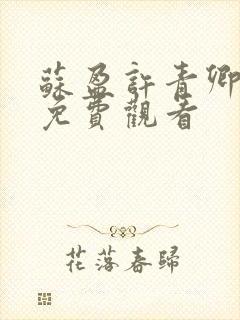 蘇盈許青卿
免費觀看
花落春歸